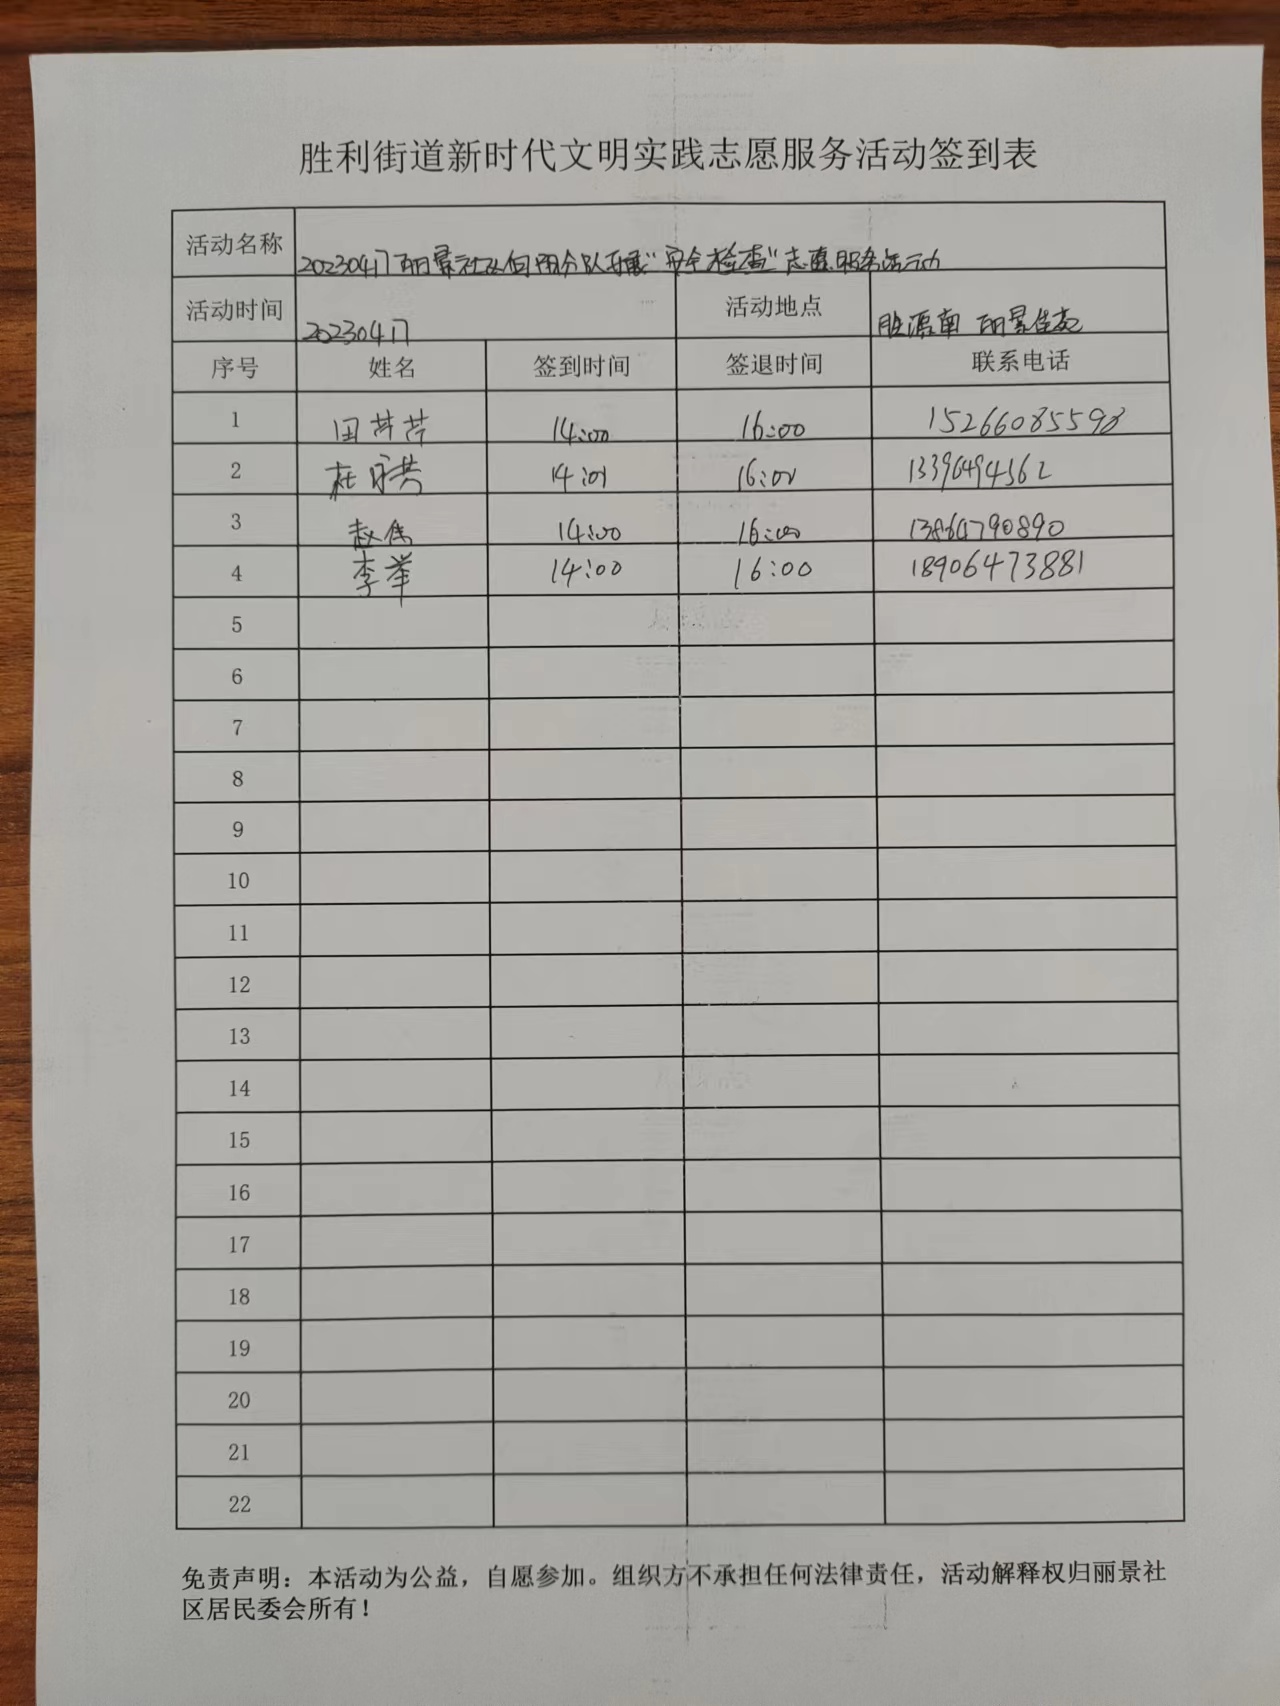 胜利街道新时代文明实践志愿服务活动签到表
活动名称 20230417丽景社区向阳分队开展“安全检查”志愿服务活动
活动时间 20230417 活动地点 胜源南 丽景佳苑
序号 姓名 签到时间 签退时间 联系电话
1 田芹芹 14:00 16:00 15266085598
2 杜 14:01 16:01 13396494362
3 赵伟 14:00 16:00 13864790890
4 李举 14:00 16:00 18906473881
5
6
7
8
9
10
11
12
13
14
15
16
17
18
19
20
21
22
免责声明：本活动为公益，自愿参加。组织方不承担任何法律责任，活动解释权归丽景社
区居民委会所有！